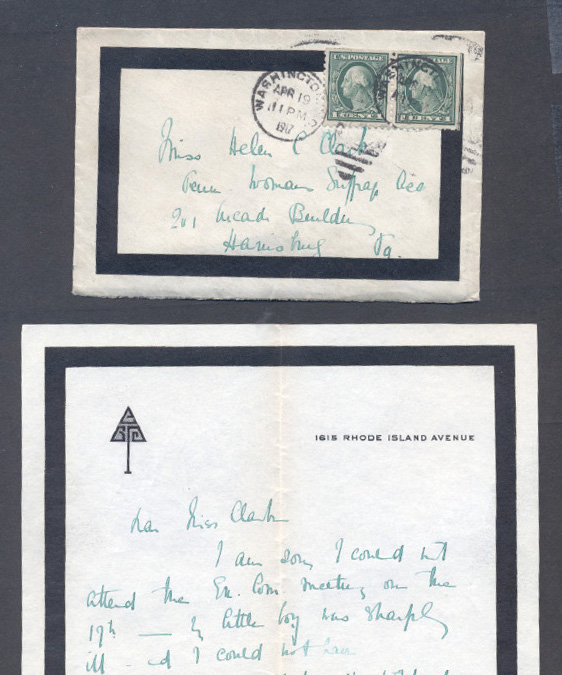 WASHINGTON
APR 19
11 PM
1917
D.C.
U.S. POSTAGE
1 CENTS 1
Miss Helen C Clark
Penn Womans Suffrag
201 Building
Harrisburg Pa.
1615 RHODE ISLAND AVENUE
Dear Miss Clark
I am sorry I could not
attend the Ex. Com meeting on the
19th — My little boy was sharply
ill - and I could not